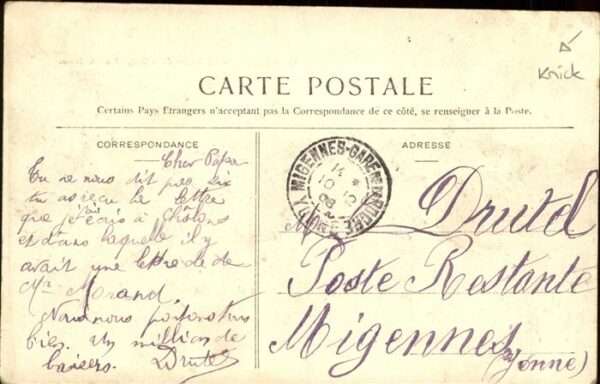 Knick
CARTE POSTALE
Certains Pays Etrangers n'acceptant pas la Correspondance de ce côté, se renseigner à la Poste.
CORRESPONDANCE
Cher Papa
Tu ne nous dit pas si
tu as reçu la lettre
que j'ai écris à Châlons
et dans laquelle il y
avait une lettre de de
Mr Morand.
Nous nous portons très
bien. Un million de
baisers. Drutel
ADRESSE
MIGENNES-GARE
14
10 10
08
Drutel
Poste Restante
Migennes (Yonne)